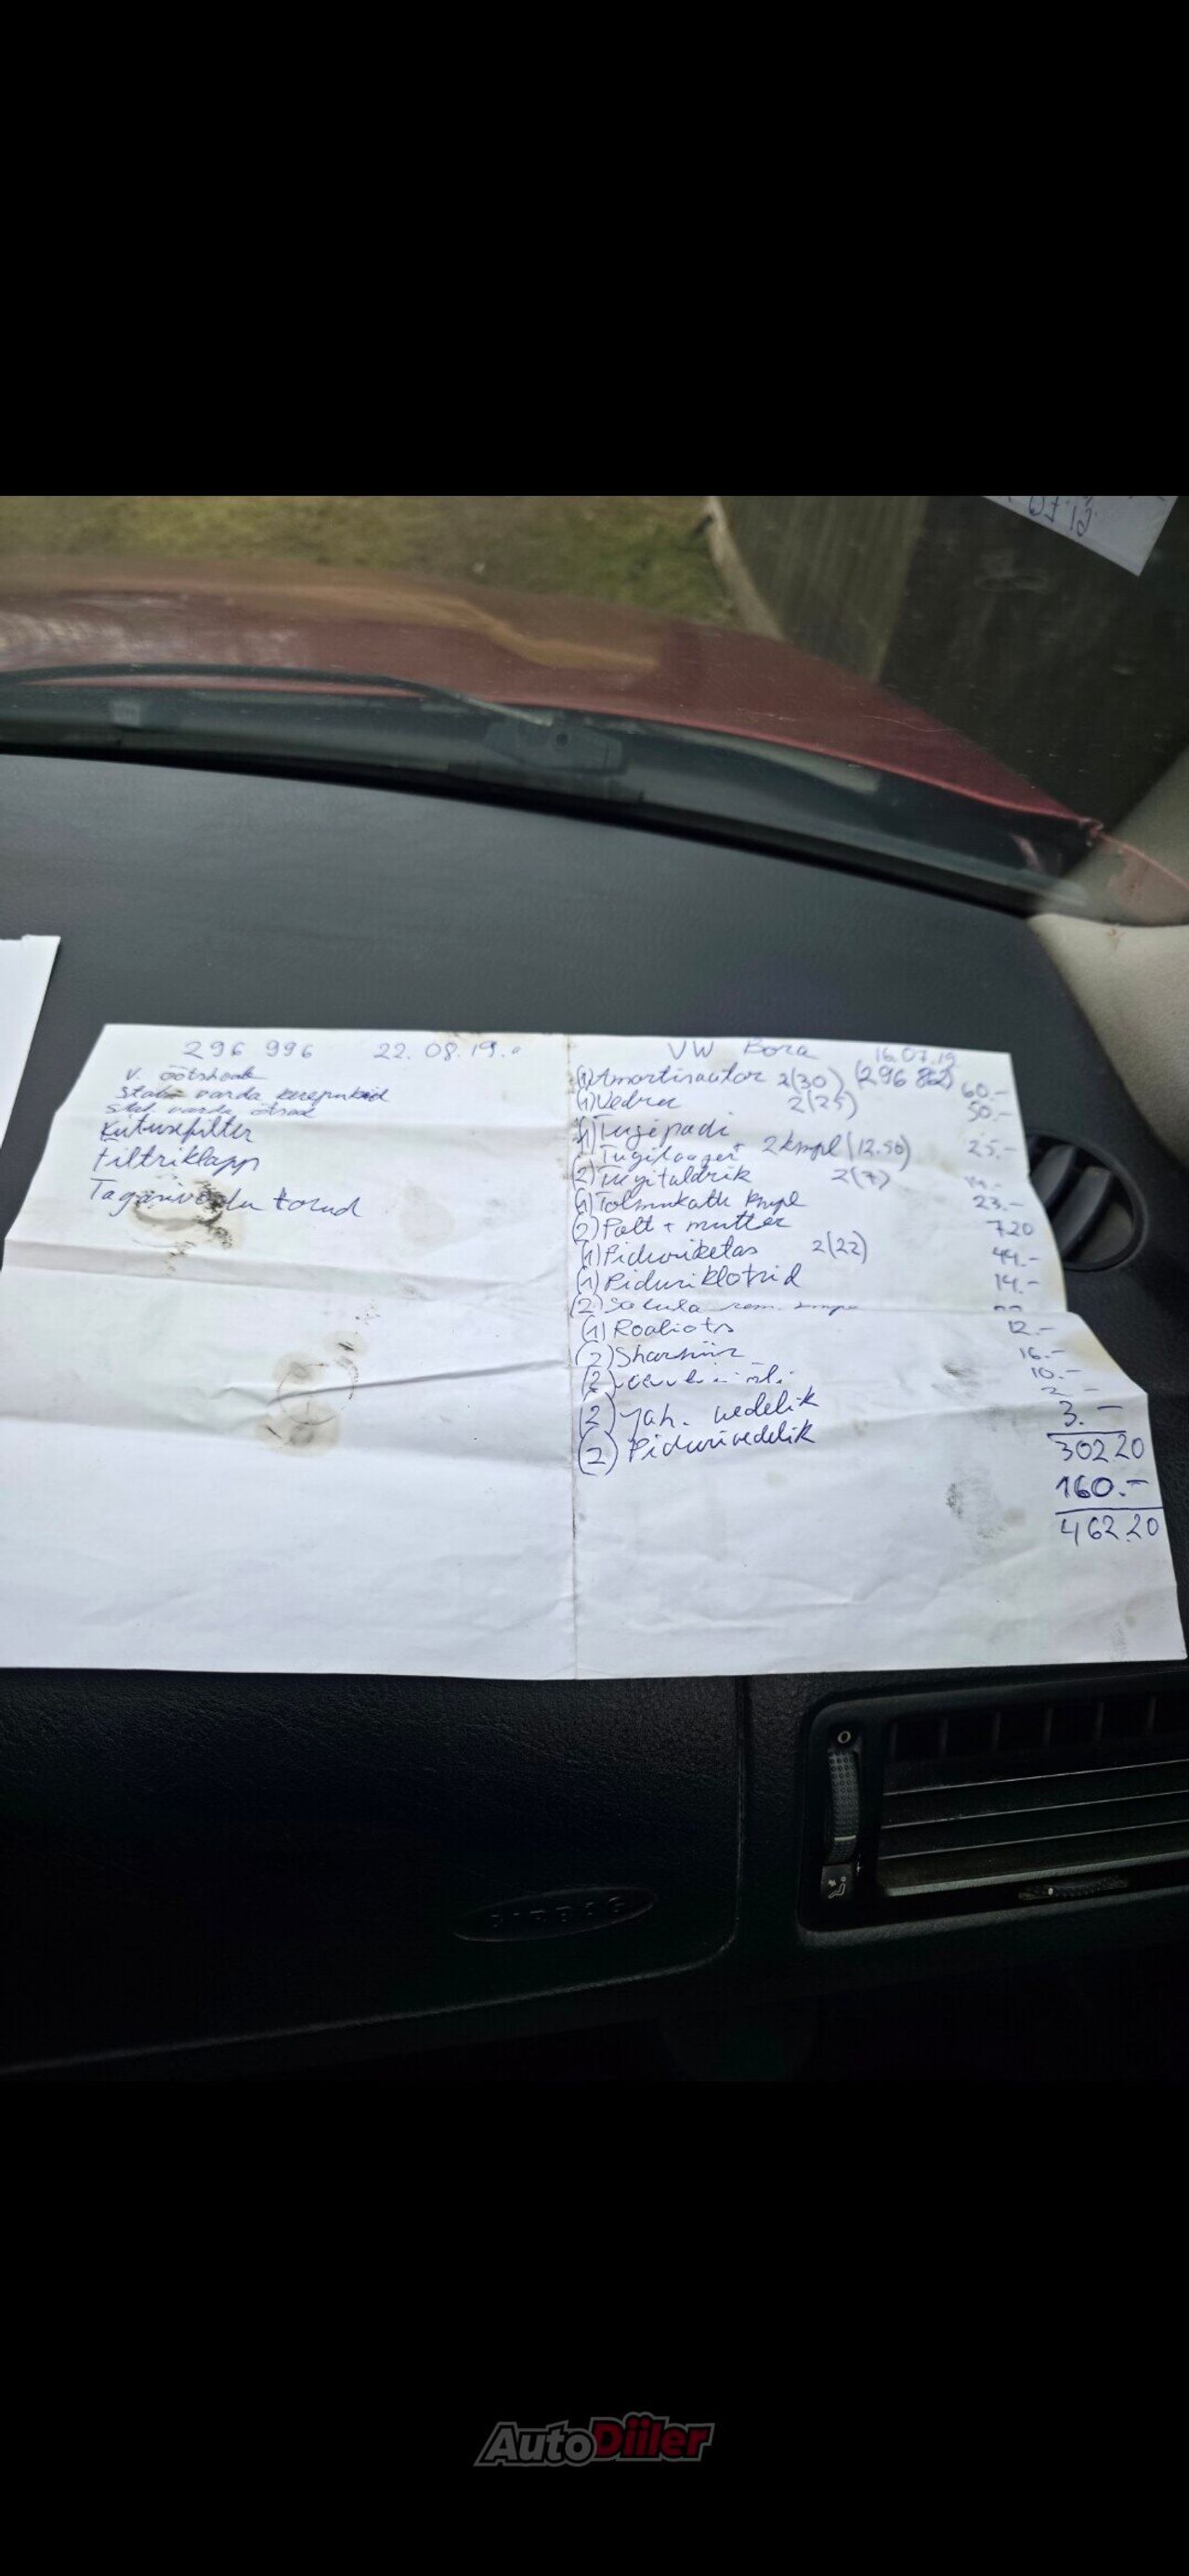 296 996 22.08.19.
V. õõtshoob
Stab. varda kerepuksid
Stab. varda otsad
Kütusefilter
Filtriklapp
Tagasivoolu torud
VW Bora 16.07.19
(1) Amortisaator 2(30) (296 862) 60.-
(1) Vedru 2(25) 50.-
(1) Tugipadi
Tugilaager + 2 kmpl (12.50) 25.-
(2) Tugitaldrik 2(7) 14.-
(1) Tolmukatte kmpl 23.-
(2) Polt + mutter 7.20
(1) Piduriketas 2(22) 44.-
(1) Piduriklotsid 14.-
(2) Sadula rem. kmpl
(1) Rooliots 12.-
(2) Sharniir 16.-
(2) 10.-
(2) Jah. vedelik 2.-
(2) Pidurivedelik 3.-
302.20
160.-
462.20
AIRBAG
AutoDiiler